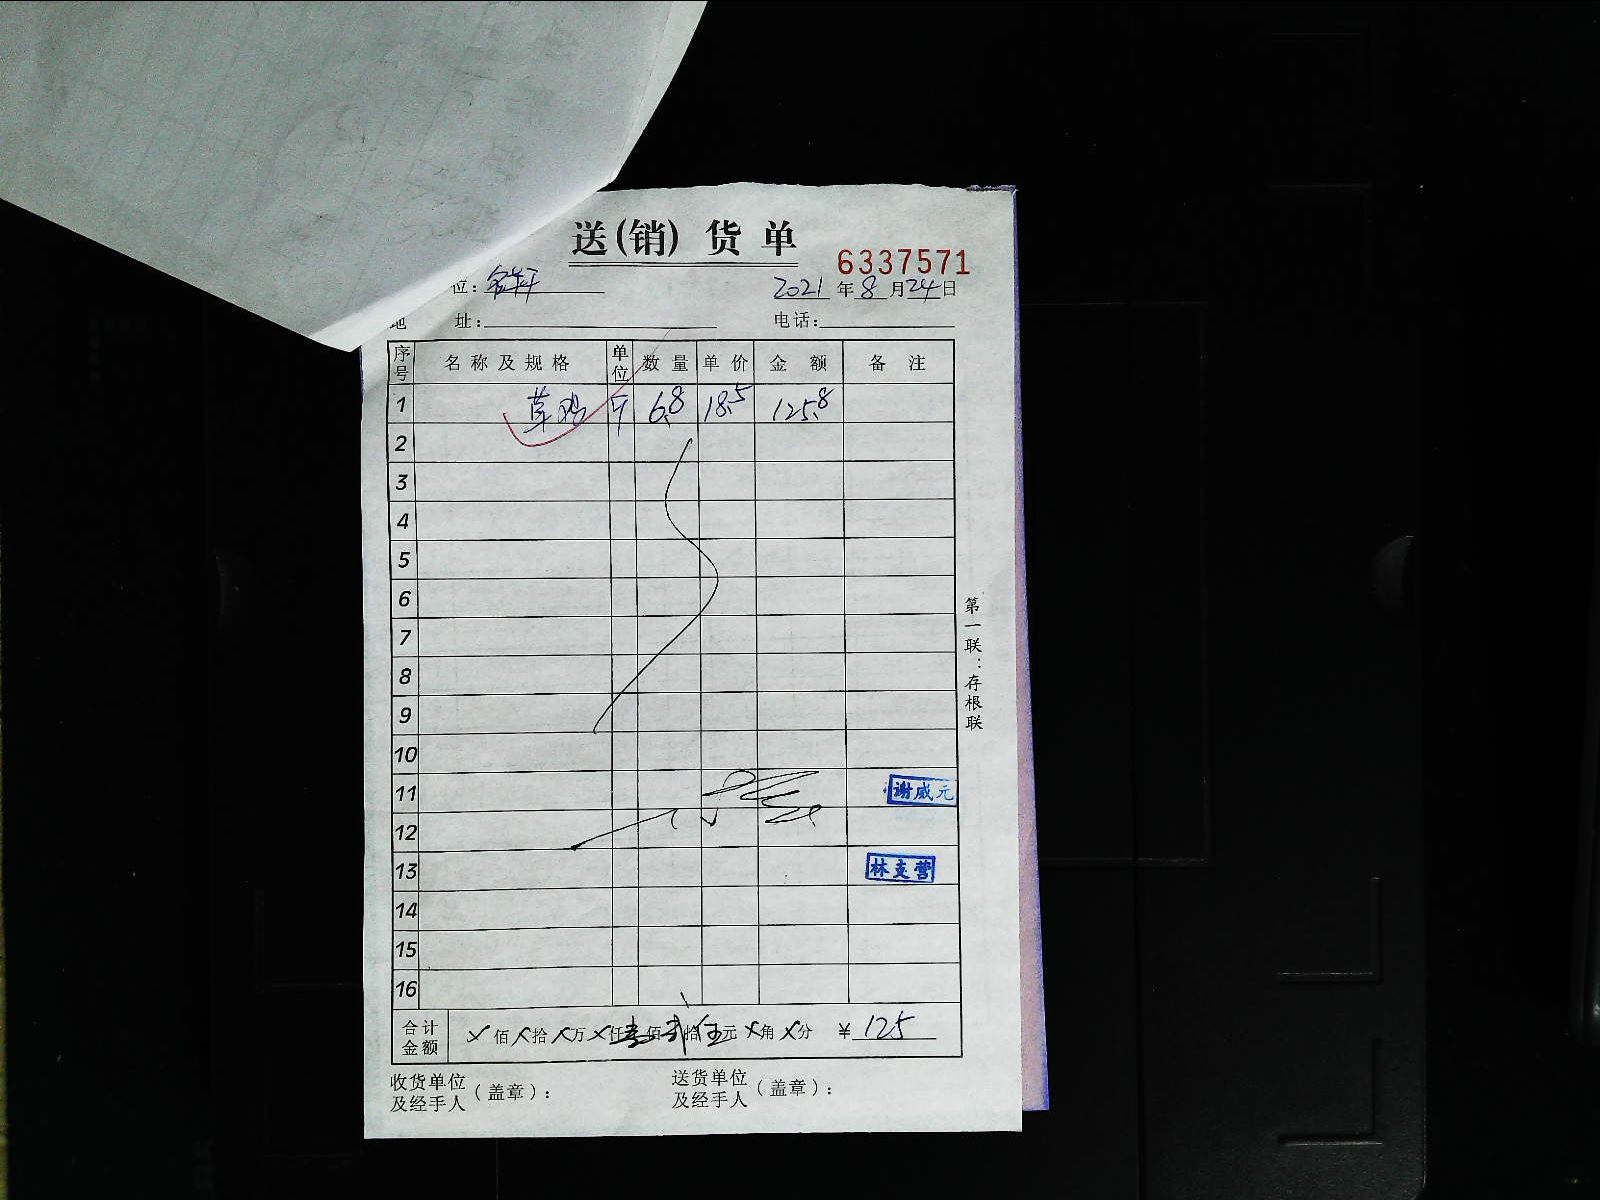 送(销)货单
6337571
位：
2021年8月24日
地 址：
电话：
序号 名称及规格 单位 数量 单价 金额 备注
1 草鸡 斤 6.8 18.5 125.8
2
3
4
5
6
7
8
9
10
11 谢威元
12
13 林支营
14
15
16
合计金额 ㄨ佰ㄨ拾ㄨ万ㄨ仟壹佰贰拾伍元ㄨ角ㄨ分 ￥125
收货单位及经手人（盖章）：
送货单位及经手人（盖章）：
第一联：存根联